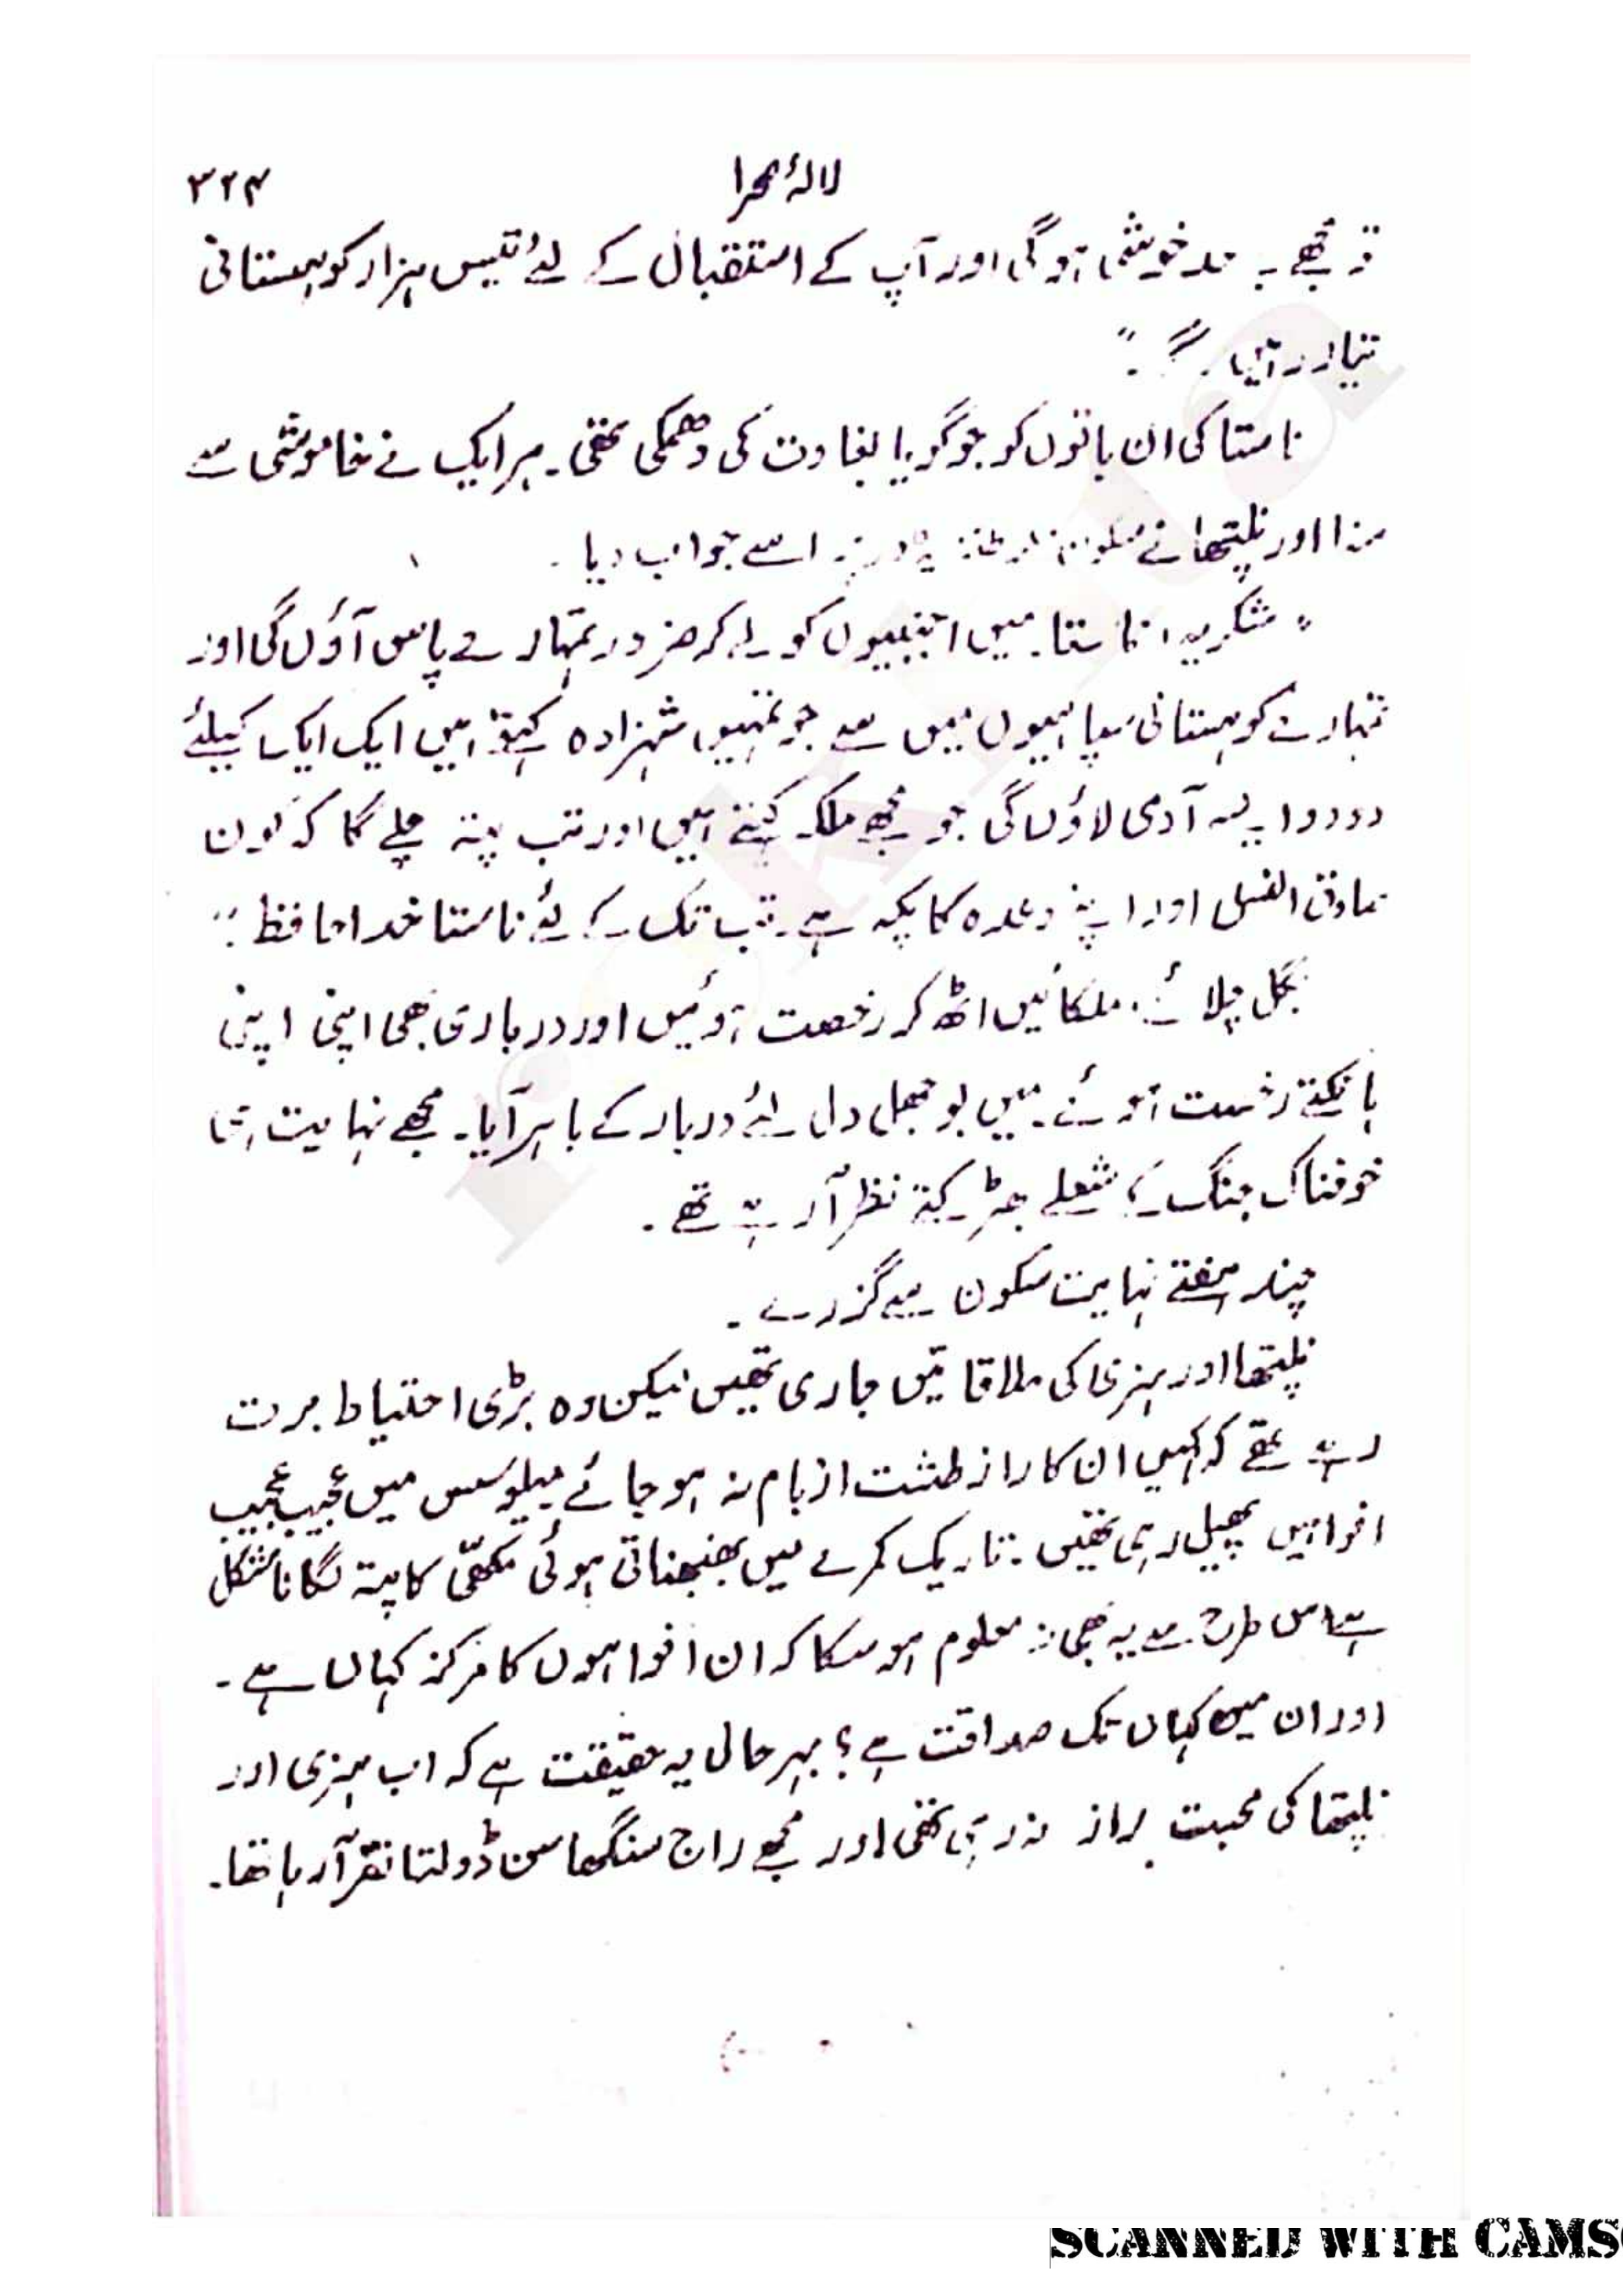 لالۂ صحرا ۳۲۴
تو مجھے بے حد خوشی ہوگی اور آپ کے استقبال کے لئے تیس ہزار کوہستانی
تیار رہیں گے۔"
ناستا کی ان باتوں کو جو گویا بغاوت کی دھمکی تھی۔ ہر ایک نے خاموشی سے
سنا اور نلیتھا نے اسے جواب دیا۔
"شکریہ! ناستا۔ میں اجنبیوں کو لے کر ضرور تمہارے پاس آؤں گی اور
تمہارے کوہستانی سپاہیوں میں سے جو تمہیں شہزادہ کہتے ہیں ایک ایک کیلئے
دو دو ایسے آدمی لاؤں گی جو مجھے ملکہ کہتے ہیں اور تب پتہ چلے گا کہ کون
صادق القول اور اپنے وعدہ کا پکہ ہے۔ تب تک کے لئے ناستا خدا حافظ۔"
بگل چلائے۔ ملکائیں اٹھ کر رخصت ہوئیں اور درباری بھی اپنی اپنی
ہانکتے رخصت ہوئے۔ میں بوجھل دل لئے دربار کے باہر آیا۔ مجھے نہایت ہی
خوفناک جنگ کے شعلے بھڑکتے نظر آ رہے تھے۔
چند ہفتے نہایت سکون سے گزرے۔
نلیتھا اور ہنری کی ملاقاتیں جاری تھیں لیکن وہ بڑی احتیاط برت
رہے تھے کہ کہیں ان کا راز طشت از بام نہ ہو جائے میلوسس میں عجیب عجیب
افواہیں پھیل رہی تھیں۔ تاریک کمرے میں بھنبھناتی ہوئی مکھی کا پتہ لگانا مشکل
ہے اس طرح سے یہ بھی نہ معلوم ہو سکا کہ ان افواہوں کا مرکز کہاں ہے۔
اور ان میں کہاں تک صداقت ہے؟ بہر حال یہ حقیقت ہے کہ اب ہنری اور
نلیتھا کی محبت راز نہ رہی تھی اور مجھے راج سنگھاسن ڈولتا نظر آ رہا تھا۔
SCANNED WITH CAMS